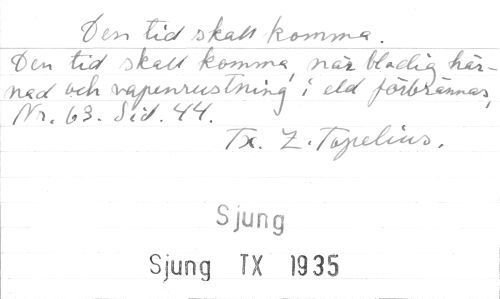 Den tid skall komma.
Den tid skall komma, när blodig här-
nad och vapenrustning i eld förbrännas,
Nr. 63. Sid. 44.
Tx. Z. Topelius.
Sjung
Sjung TX 1935